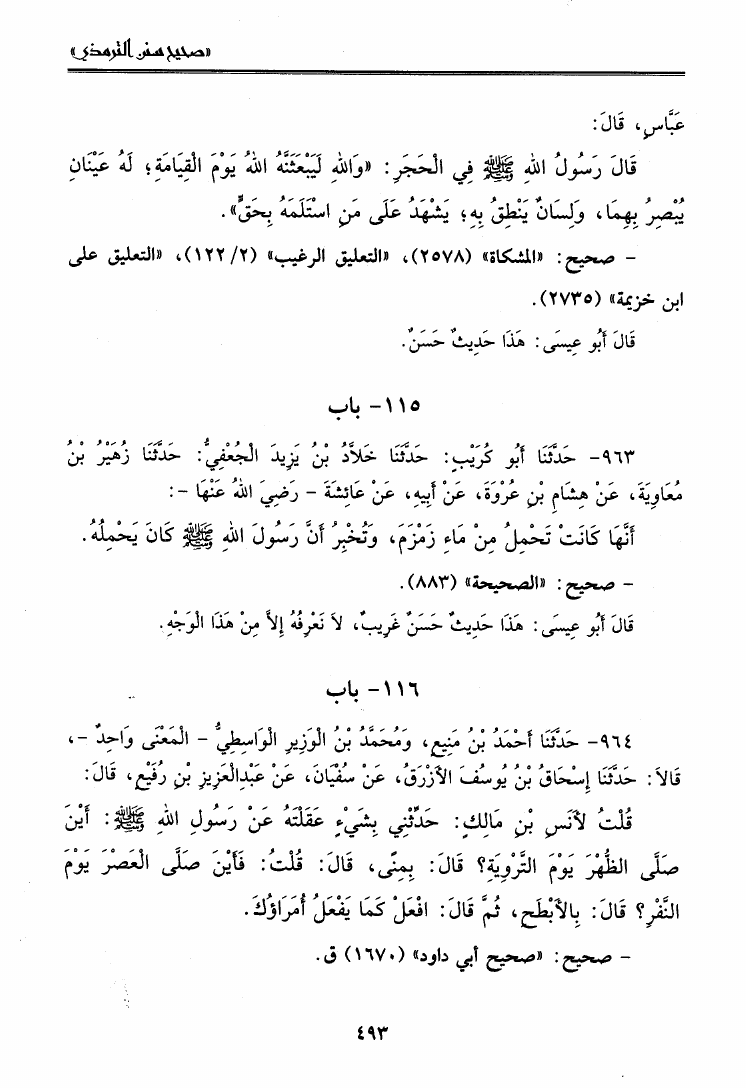 «صحيح سنن الترمذي»
عَبَّاسٍ، قَالَ:
قَالَ رَسُولُ اللهِ ﷺ فِي الْحَجَرِ: «وَاللهِ لَيَبْعَثَنَّهُ اللهُ يَوْمَ الْقِيَامَةِ؛ لَهُ عَيْنَانِ
يُبْصِرُ بِهِمَا، وَلِسَانٌ يَنْطِقُ بِهِ؛ يَشْهَدُ عَلَى مَنِ اسْتَلَمَهُ بِحَقٍّ».
- صحيح: «المشكاة» (٢٥٧٨)، «التعليق الرغيب» (٢/ ١٢٢)، «التعليق على
ابن خزيمة» (٢٧٣٥).
قَالَ أَبُو عِيسَى: هَذَا حَدِيثٌ حَسَنٌ.
١١٥- باب
٩٦٣- حَدَّثَنَا أَبُو كُرَيْبٍ: حَدَّثَنَا خَلاَّدُ بْنُ يَزِيدَ الْجُعْفِيُّ: حَدَّثَنَا زُهَيْرُ بْنُ
مُعَاوِيَةَ، عَنْ هِشَامِ بْنِ عُرْوَةَ، عَنْ أَبِيهِ، عَنْ عَائِشَةَ - رَضِيَ اللهُ عَنْهَا -:
أَنَّهَا كَانَتْ تَحْمِلُ مِنْ مَاءِ زَمْزَمَ، وَتُخْبِرُ أَنَّ رَسُولَ اللهِ ﷺ كَانَ يَحْمِلُهُ.
- صحيح: «الصحيحة» (٨٨٣).
قَالَ أَبُو عِيسَى: هَذَا حَدِيثٌ حَسَنٌ غَرِيبٌ، لاَ نَعْرِفُهُ إِلاَّ مِنْ هَذَا الْوَجْهِ.
١١٦- باب
٩٦٤- حَدَّثَنَا أَحْمَدُ بْنُ مَنِيعٍ، وَمُحَمَّدُ بْنُ الْوَزِيرِ الْوَاسِطِيُّ - الْمَعْنَى وَاحِدٌ -،
قَالاَ: حَدَّثَنَا إِسْحَاقُ بْنُ يُوسُفَ الأَزْرَقُ، عَنْ سُفْيَانَ، عَنْ عَبْدِالْعَزِيزِ بْنِ رُفَيْعٍ، قَالَ:
قُلْتُ لأَنَسِ بْنِ مَالِكٍ: حَدِّثْنِي بِشَيْءٍ عَقَلْتَهُ عَنْ رَسُولِ اللهِ ﷺ: أَيْنَ
صَلَّى الظُّهْرَ يَوْمَ التَّرْوِيَةِ؟ قَالَ: بِمِنًى، قَالَ: قُلْتُ: فَأَيْنَ صَلَّى الْعَصْرَ يَوْمَ
النَّفْرِ؟ قَالَ: بِالأَبْطَحِ، ثُمَّ قَالَ: افْعَلْ كَمَا يَفْعَلُ أُمَرَاؤُكَ.
- صحيح: «صحيح أبي داود» (١٦٧٠) ق.
٤٩٣